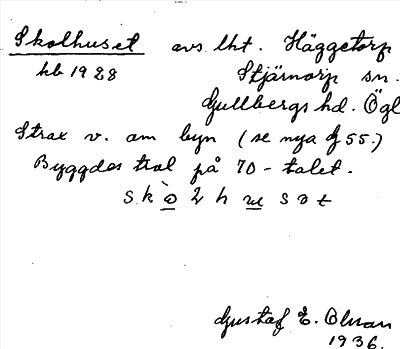 Skolhuset avs. lht. Häggetorp
kb 1928 Stjärnorp sn.
Gullbergs hd. Ögl
Strax v. om byn (se nya J 55.)
Byggdes trol på 70-talet.
s k o 2 h u s ə t
Gustaf E. Olsson
1936.